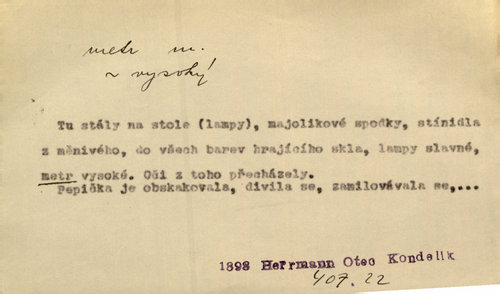 metr m.
~ vysoký
Tu stály na stole (lampy), majolikové spodky, stínidla
z měnivého, do všech barev hrajícího skla, lampy slavné,
metr vysoké. Oči z toho přecházely.
Pepička je obskakovala, divila se, zamilovávala se,...
1898 Herrmann Otec Kondelik
407.22